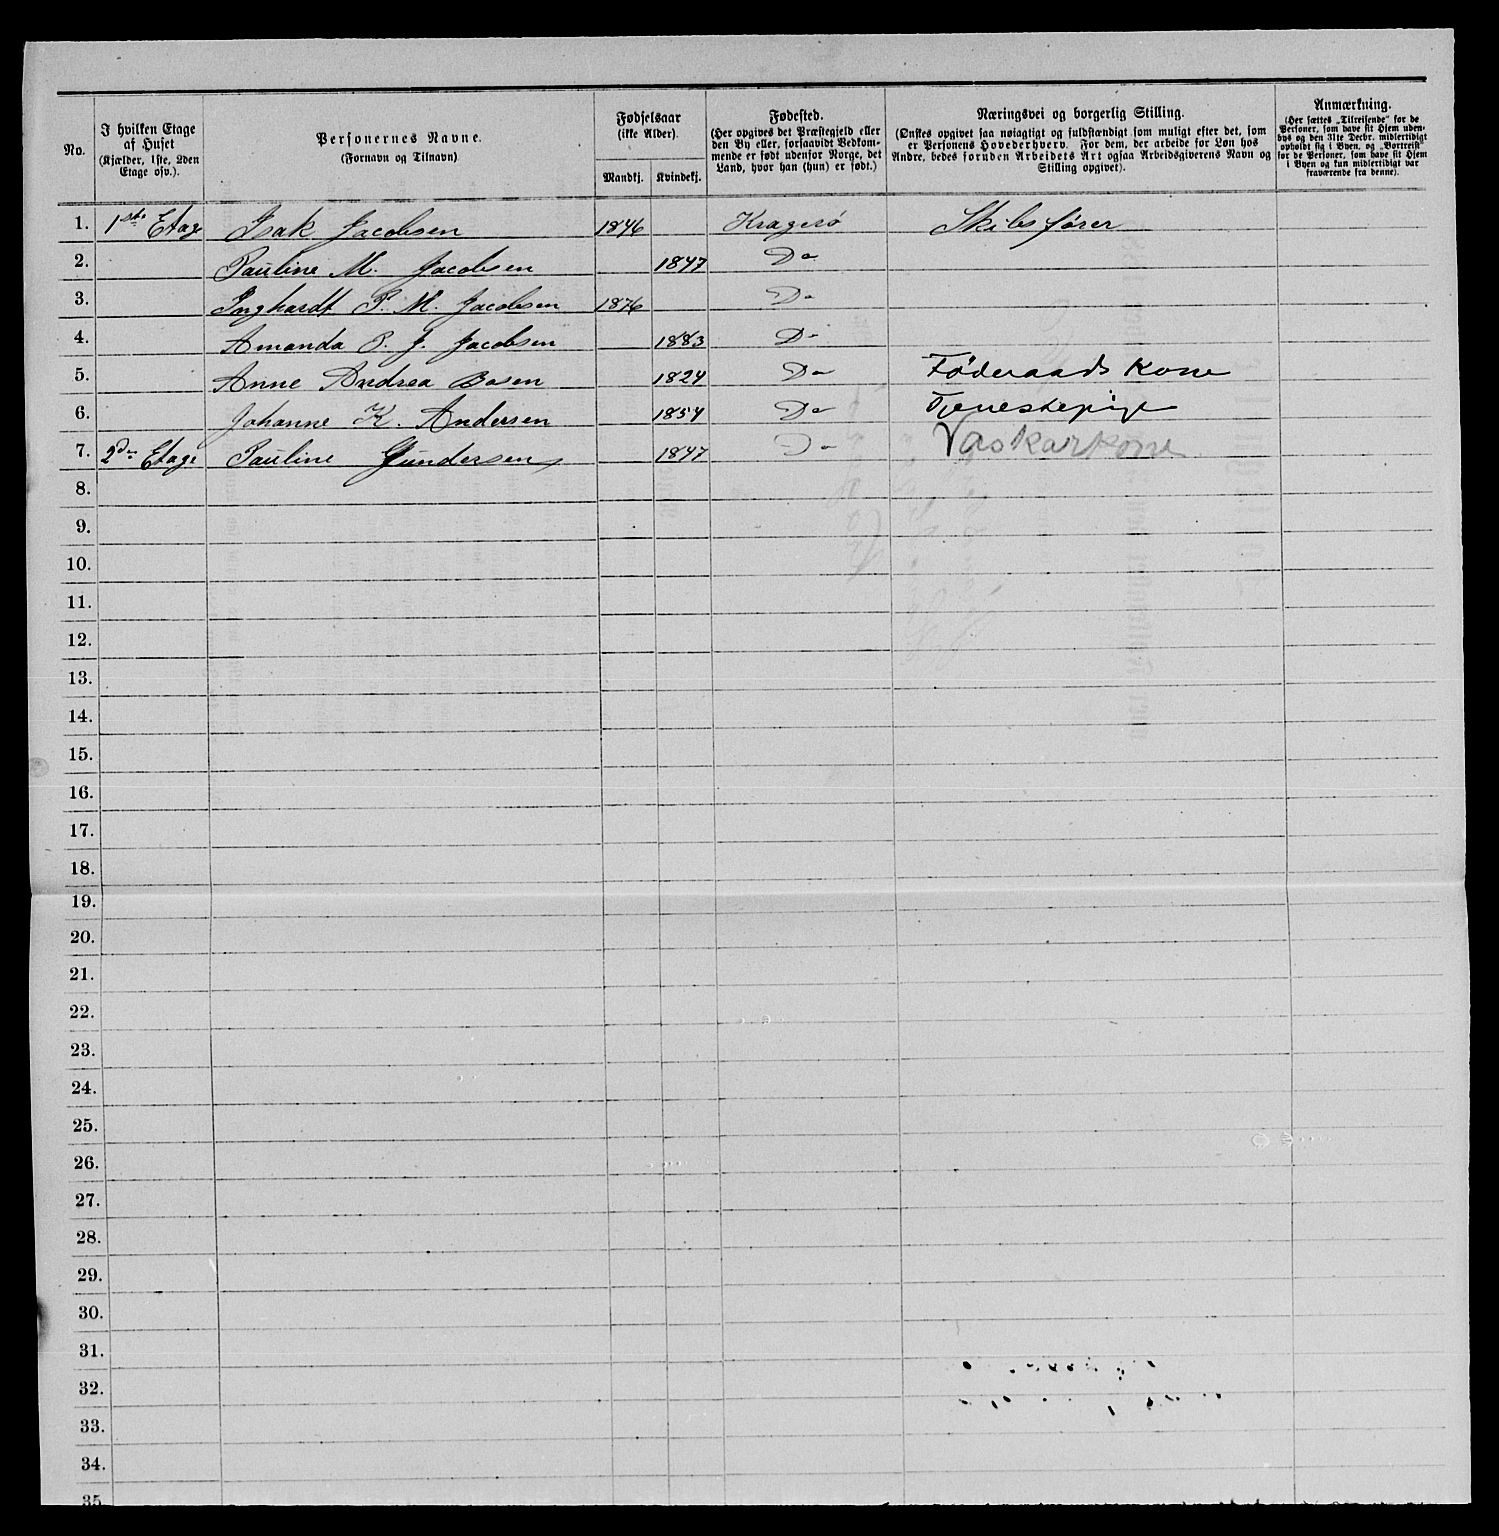 No.
I hvilken Etage
af Huset
(Kjælder, 1ste, 2den
Etage osv.).
Personernes Navne.
(Fornavn og Tilnavn)
Fødselsaar
(ikke Alder).
Mandkj.
Kvindekj.
Fødested.
(Her opgives det Præstegjeld eller
den By eller, forsaavidt Bedkom-
mende er født udenfor Norge, det
Land, hvor han (hun) er født.)
Næringsvei og borgerlig Stilling.
(Ønskes opgivet saa nøiagtigt og fuldstændigt som muligt efter det, som
er Personens Hovederhverv. For dem, der arbeide for Løn hos
Andre, bedes foruden Arbeidets Art ogsaa Arbeidsgiverens Navn og
Stilling opgivet).
Anmærkning.
(Her sættes „Tilreisende“ for de
Personer, som have sit Hjem uden-
bys og den 31te Decbr. midlertidigt
opholdt sig i Byen, og „Bortreist“
for de Personer, som have sit Hjem
i Byen og kun midlertidigt var
fraværende fra denne).
1. 1ste Etage Isak Jacobsen 1846 Kragerø Skibsfører
2. Pauline M. Jacobsen 1847 Do
3. Inghardt P. M. Jacobsen 1876 Do
4. Amanda P. J. Jacobsen 1883 Do
5. Anne Andrea Bosen 1824 Do Føderaads Kone
6. Johanne K. Andersen 1854 Do Tjenestepige
7. 2den Etage Pauline Gundersen 1847 Do Vaskarkone
8.
9.
10.
11.
12.
13.
14.
15.
16.
17.
18.
19.
20.
21.
22.
23.
24.
25.
26.
27.
28.
29.
30.
31.
32.
33.
34.
35